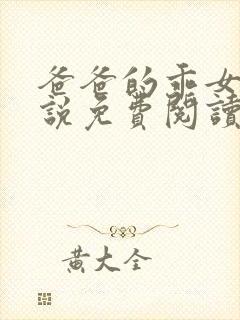 爸爸的乖女
說免費閱讀
黃大全